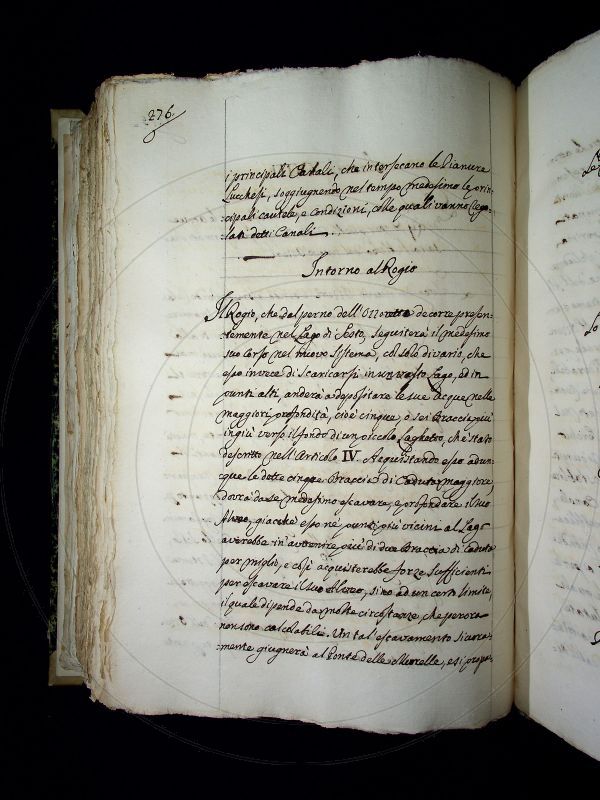 276.
i principali Canali, che intersecano le Pianure
Lucchesi, soggiugnendo nel tempo medesimo le prin-
-cipali cautele, e condizioni, colle quali vanno rego-
-lati detti Canali.
Intorno al Rogio
Il Rogio, che dal perno dell'Ozzoretto decorre presen-
-temente nel Lago di Sesto, seguiterà il medesimo
suo corso nel nuovo sistema, col solo divario, che
esso invece di scaricarsi in un vasto Lago, ed in
punti alti, anderà a depositare le sue acque nelle
maggiori profondità, cioè cinque o sei Braccia più
in giù verso il fondo di un piccolo Laghetto, che è stato
descritto nell'Articolo IV. Acquistando esso adun-
que le dette cinque Braccia di Caduta maggiore,
dovrà da se medesimo escavare, e profondare il suo
Alveo, giacchè esso ne' punti più vicini al Lago
averebbe in avvenire più di due Braccia di Caduta
per miglio, e così acquisterebbe forze sufficienti
per escavare il suo Alveo, sino ad un certo limite,
il quale dipende da molte circostanze, che per ora
non sono calcolabili. Un tal escavamento sicura-
-mente giugnerà al Ponte delle Murelle, e si propa-